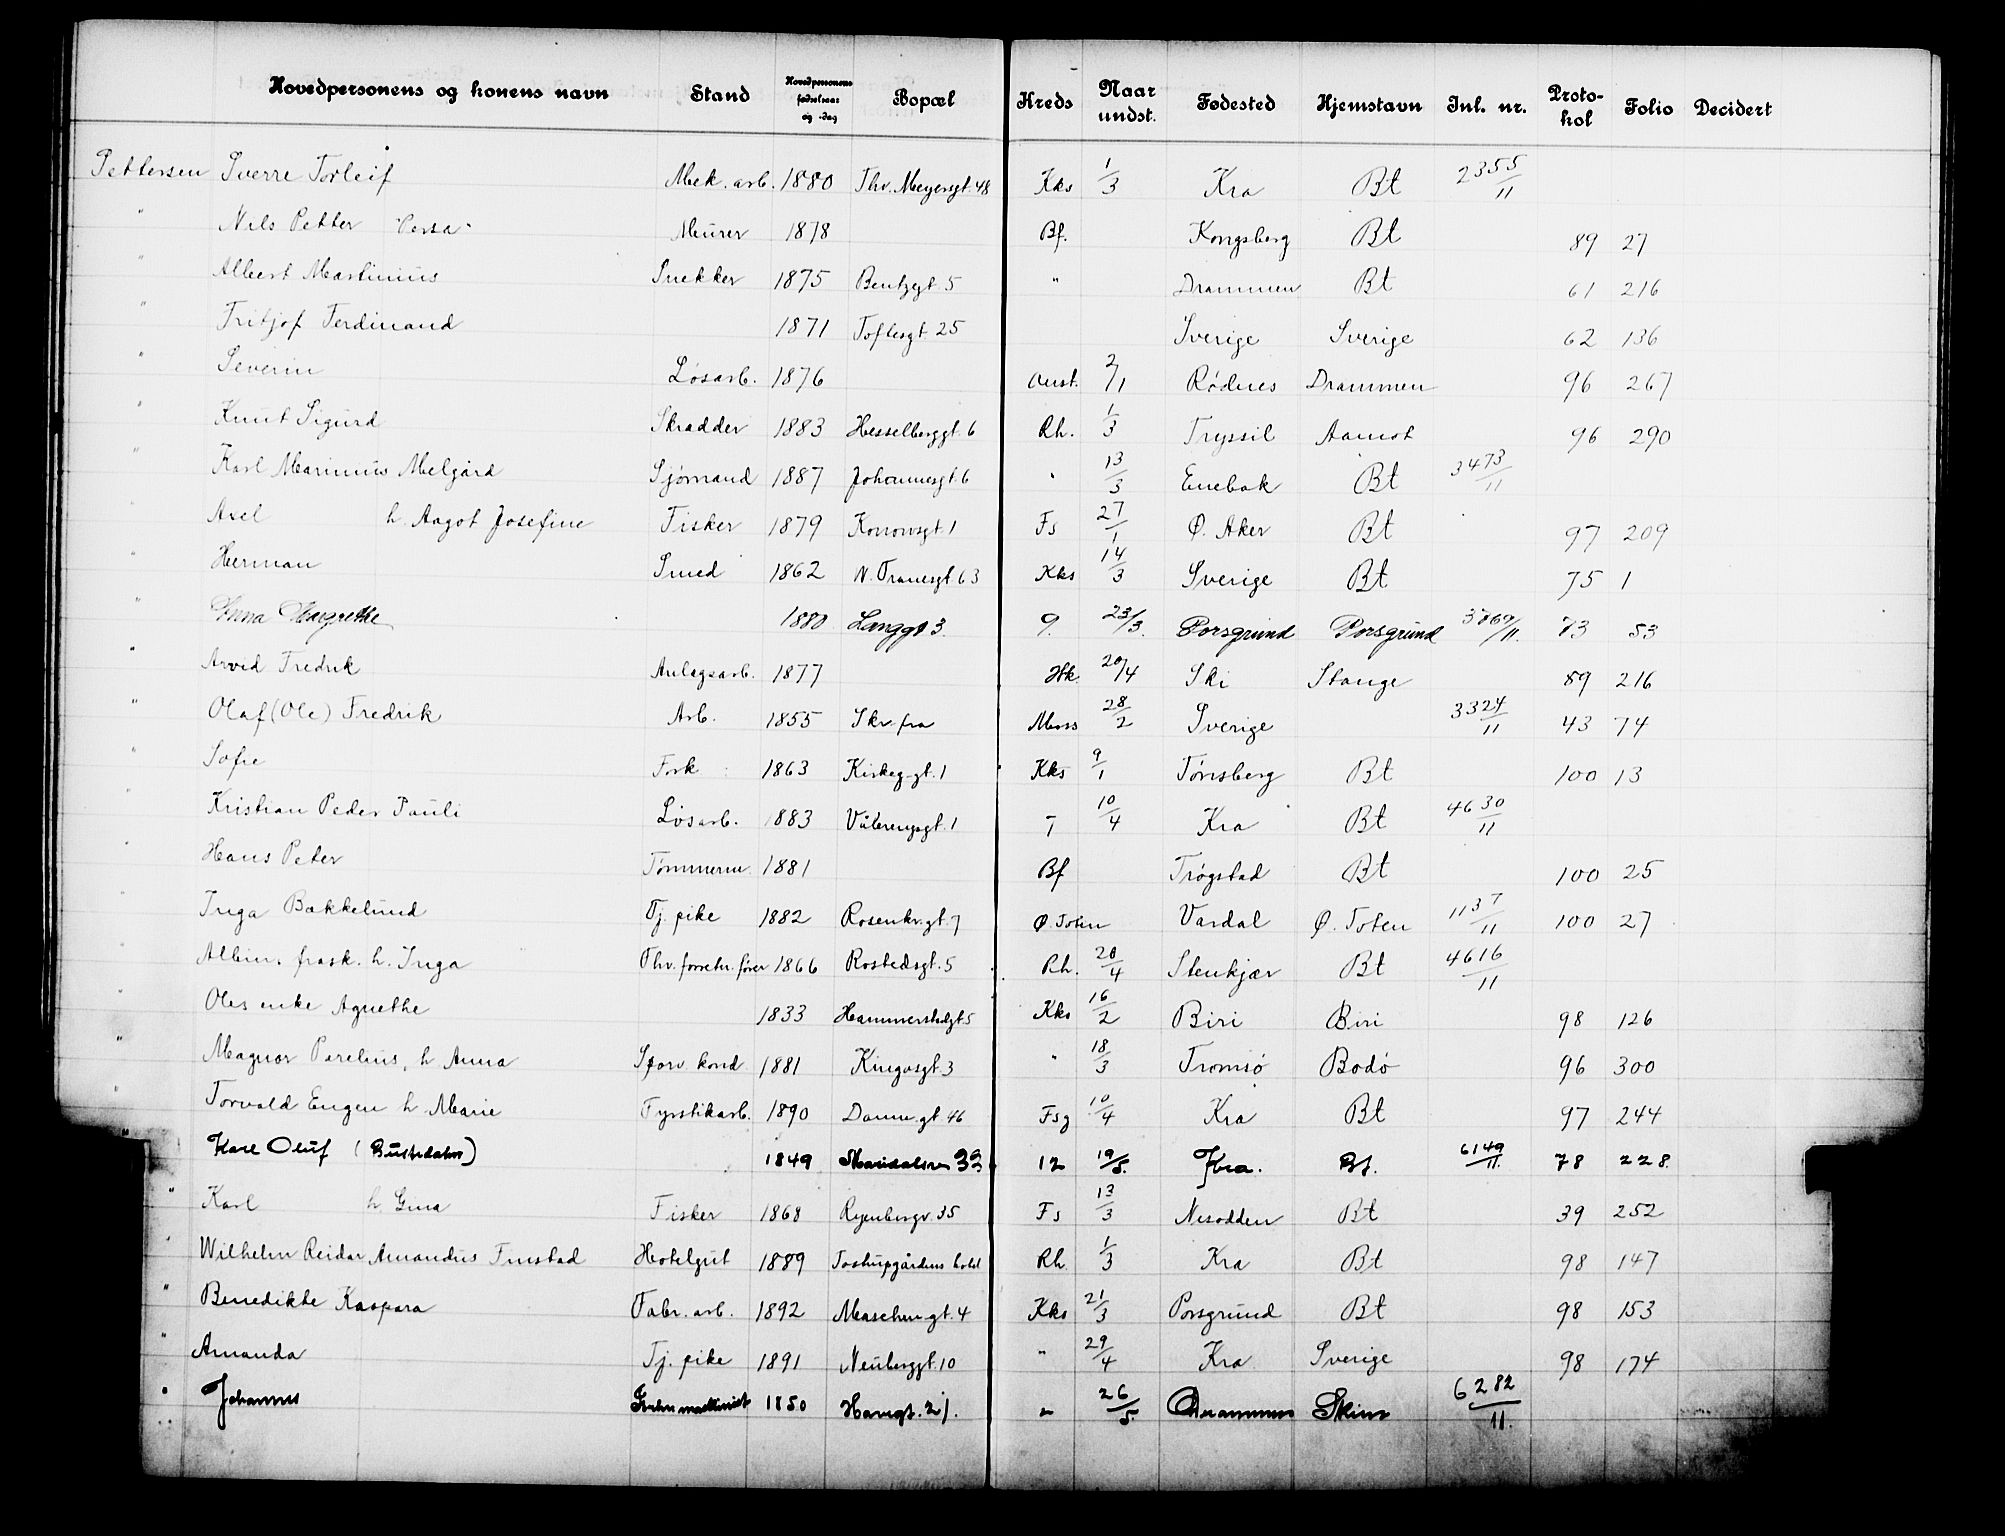 Hovedpersonens og konens navn Stand Hovedpersonens fødselsaar og -dag Bopæl Kreds Naar undst. Fødested Hjemstavn Inl. nr. Proto-kol Folio Decidert
Pettersen Sverre Torleif Mek. arb. 1880 Thv. Meyersgt. 48 Kks 1/3 Kra Bt 2355/11
" Nils Petter Murer 1878 Bf. Kongsberg Bt 89 27
" Albert Martinius Snekker 1875 Bentzegt. 5 " Drammen Bt 61 216
" Fritjof Ferdinand 1871 Toftesgt. 25 Sverige Sverige 62 136
" Severin Løsarb. 1876 Aust. 2/1 Rødnes Drammen 96 267
" Knut Sigurd Skrædder 1883 Hesselberggt. 6 Rh. 1/3 Tryssil Aamot 96 290
" Karl Marinius Melgård Sjømand 1887 Johannesgt. 6 " 13/3 Enebak Bt 3473/11
" Axel h. Aagot Josefine Fisker 1879 Konowsgt. 1 Fs 27/1 Ø. Aker Bt 97 209
" Herman Smed 1862 N. Tranesgt. 63 Kks 14/3 Sverige Bt 75 1
" Anna Margrethe 1880 Langgt 3. 9. 23/3. Porsgrund Porsgrund 3869/11. 73 53
" Arvid Fredrik Anlegsarb. 1877 Hk. 20/4 Ski Stange 89 216
" Olaf (Ole) Fredrik Arb. 1855 Skr. fra Moss 28/2 Sverige 3324/11 43 74
" Sofie Fork. 1863 Kirkeg-gt. 1 Kks 9/1 Tønsberg Bt 100 13
" Kristian Peder Pauli Løsarb. 1883 Vålerenggt. 1 T 10/4 Kra Bt 4630/11
" Hans Peter Tømmerm. 1881 Bf Trøgstad Bt 100 25
" Inga Bækkelund Tj. pike 1882 Rosenkr. gt. 7 Ø. Toten Vardal Ø. Toten 1137/11 100 27
" Albin, frask. h. Inga Thv. forretn. fører 1866 Rostedsgt. 5 Rh. 20/4 Stenkjær Bt 4616/11
" Oles enke Agnethe 1833 Hammersborggt. 5 Kks 16/2 Biri Biri 98 126
" Magnor Parelius, h Anna Sporv. kond 1881 Kingosgt. 3 " 18/3 Tromsø Bodø 96 300
" Torvald Eugen h. Marie Fyrstikarb. 1890 Danne-gt. 46 Fsg 10/4 Kra Bt 97 244
" Karl Oluf 1849 Maridalsvn 33 12 19/5. Kra. Bt. 6149/11. 78 228.
" Karl h. Gina Fisker 1868 Ryenbergv. 35 Fs 13/3 Nesodden Bt 39 252
" Wilhelm Reidar Amandus Finstad Hotelgut 1889 Tostrupgårdens hotel Rh. 1/3 Kra Bt 98 147
" Benedikte Kaspara Fabr. arb. 1892 Maschin-gt. 4 Kks 21/3 Porsgrund Bt 98 153
" Amanda Tj. pike 1891 Neuberggt. 10 " 29/4 Kra Sverige 98 174
" Johannes 1850 Havngt. 21. " 26/5 Drammen Skien 6282/11.